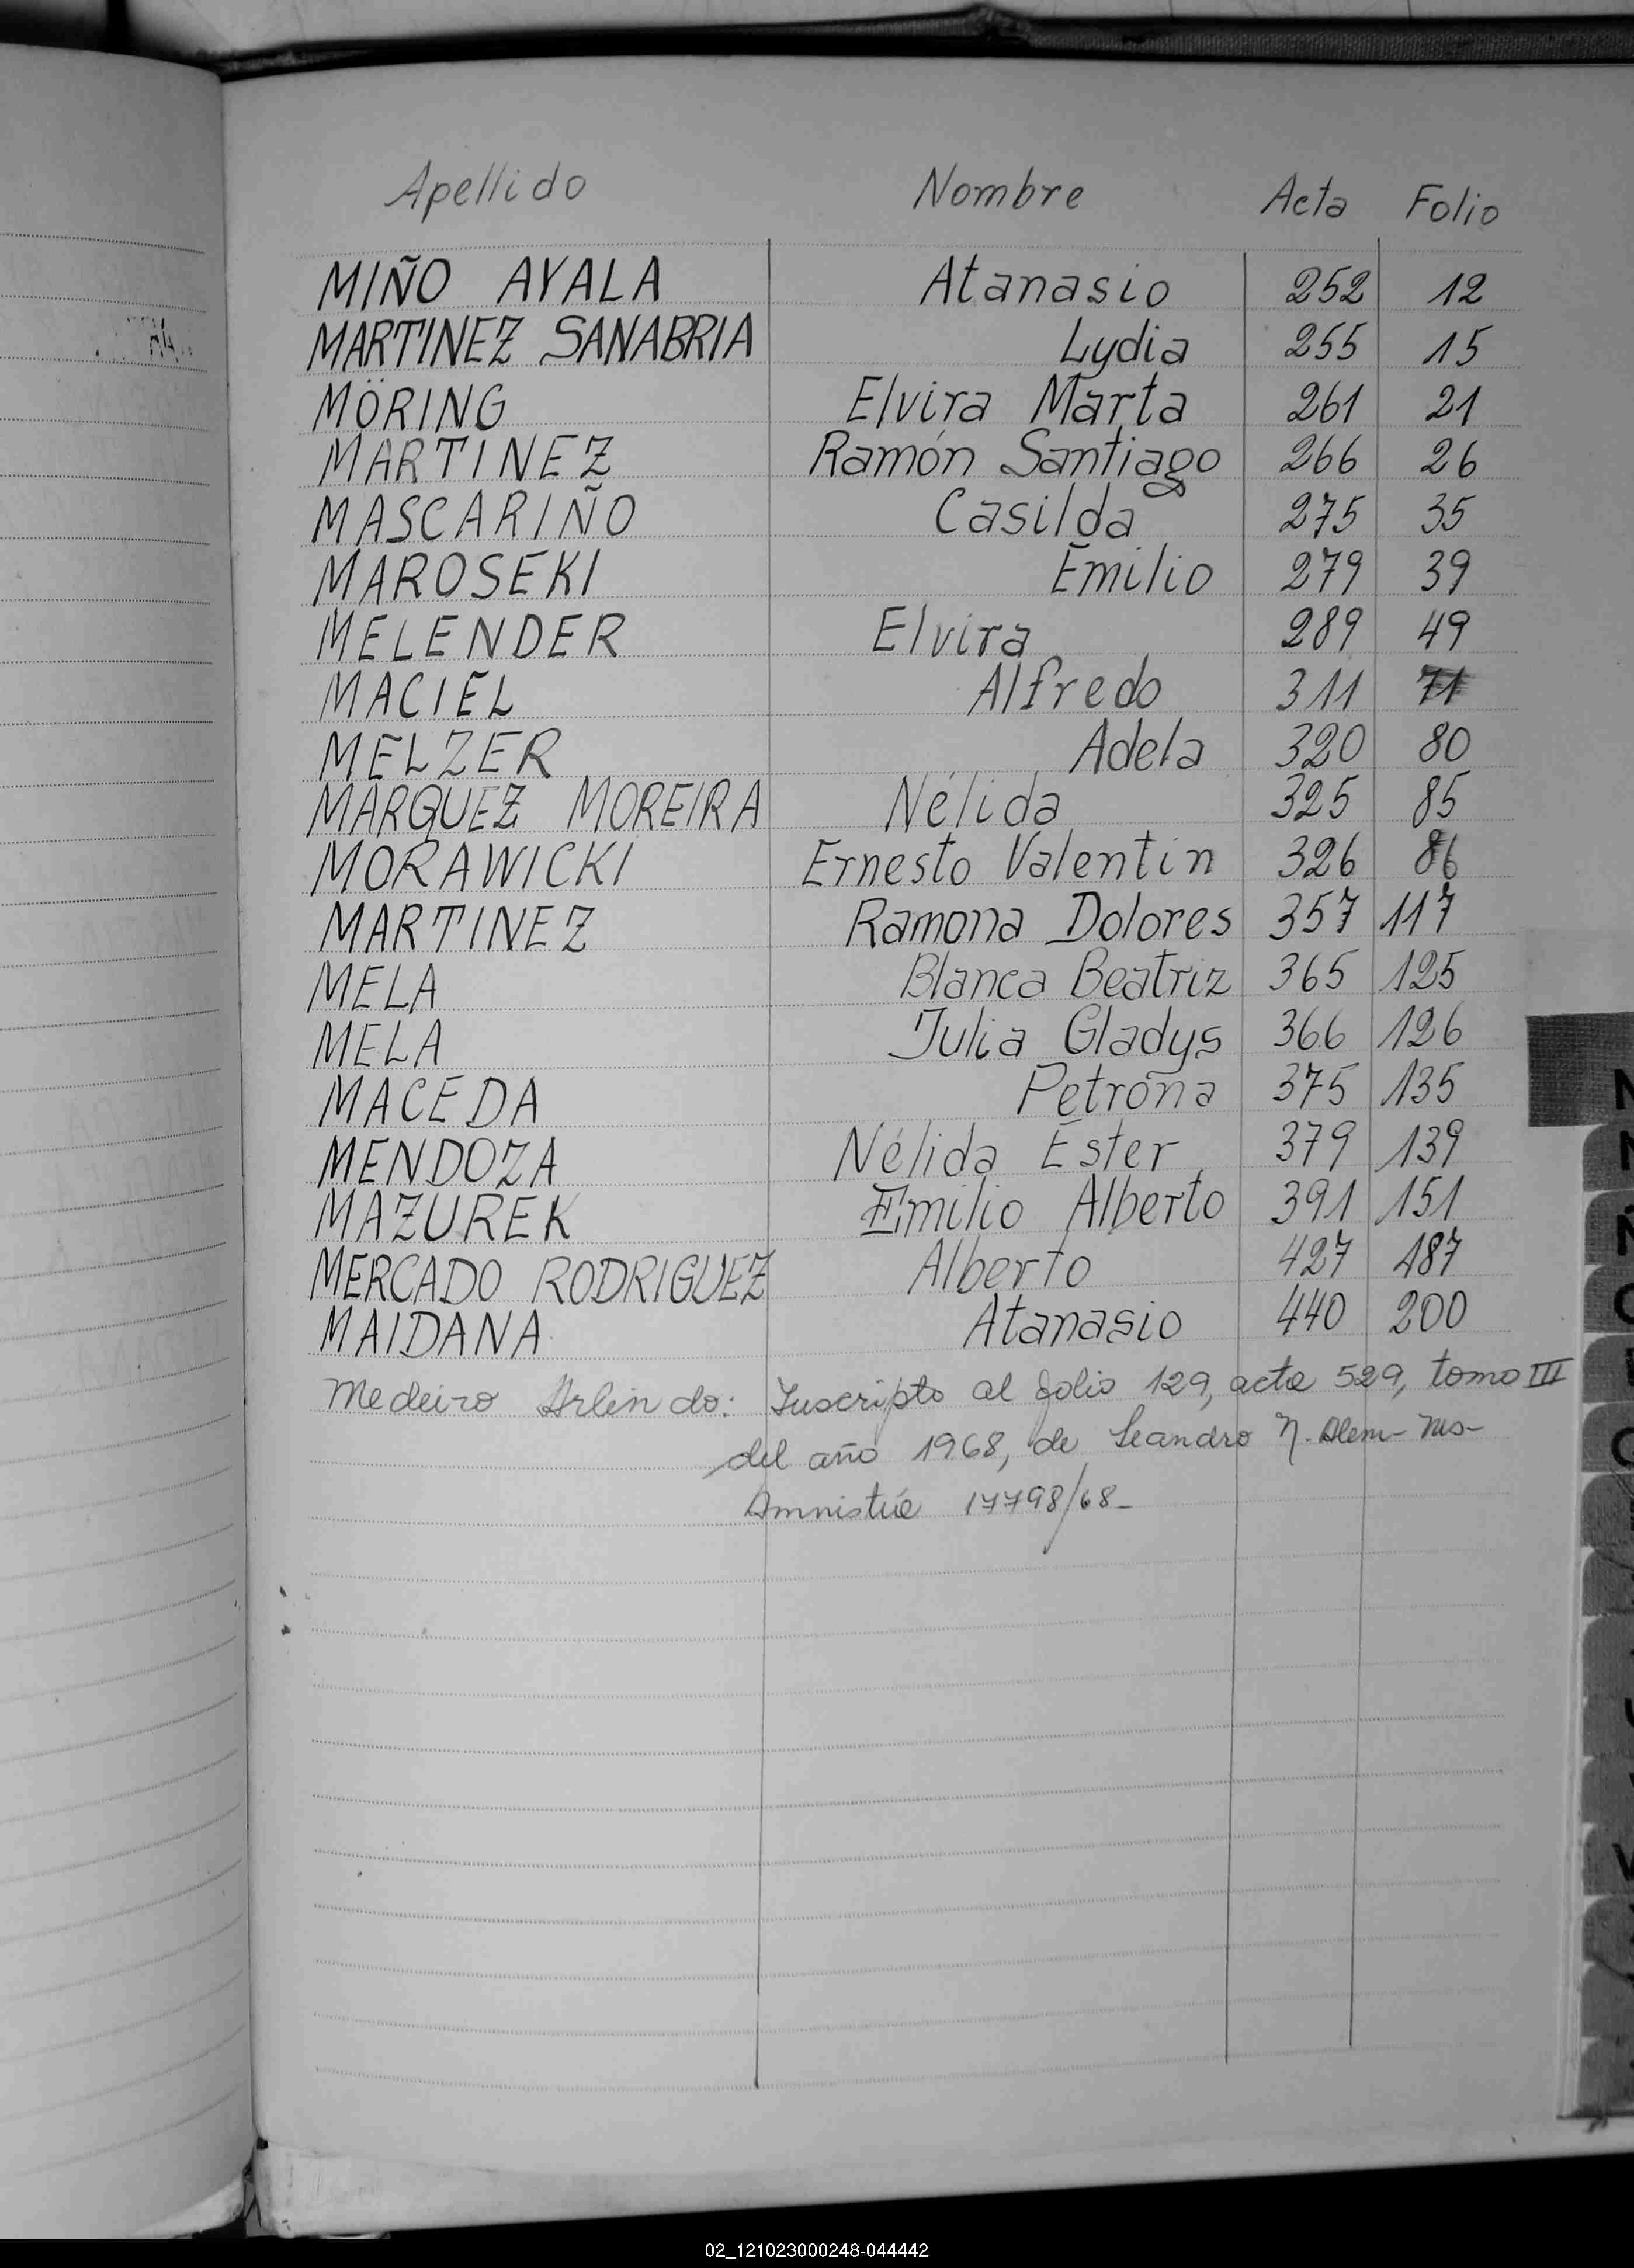 Apellido Nombre Acta Folio
MIÑO AYALA Atanasio 252 12
MARTINEZ SANABRIA Lydia 255 15
MÖRING Elvira Marta 261 21
MARTINEZ Ramón Santiago 266 26
MASCARIÑO Casilda 275 35
MAROSEKI Emilio 279 39
MELENDER Elvira 289 49
MACIEL Alfredo 311 71
MELZER Adela 320 80
MARQUEZ MOREIRA Nélida 325 85
MORAWICKI Ernesto Valentin 326 86
MARTINEZ Ramona Dolores 357 117
MELA Blanca Beatriz 365 125
MELA Julia Gladys 366 126
MACEDA Petrona 375 135
MENDOZA Nélida Ester 379 139
MAZUREK Emilio Alberto 391 151
MERCADO RODRIGUEZ Alberto 427 187
MAIDANA Atanasio 440 200
Medeiro Arlindo: Inscripto al folio 129, acta 529, tomo III
del año 1968, de Leandro N. Alem - Ms-
Amnistía 17798/68-
02_121023000248-044442